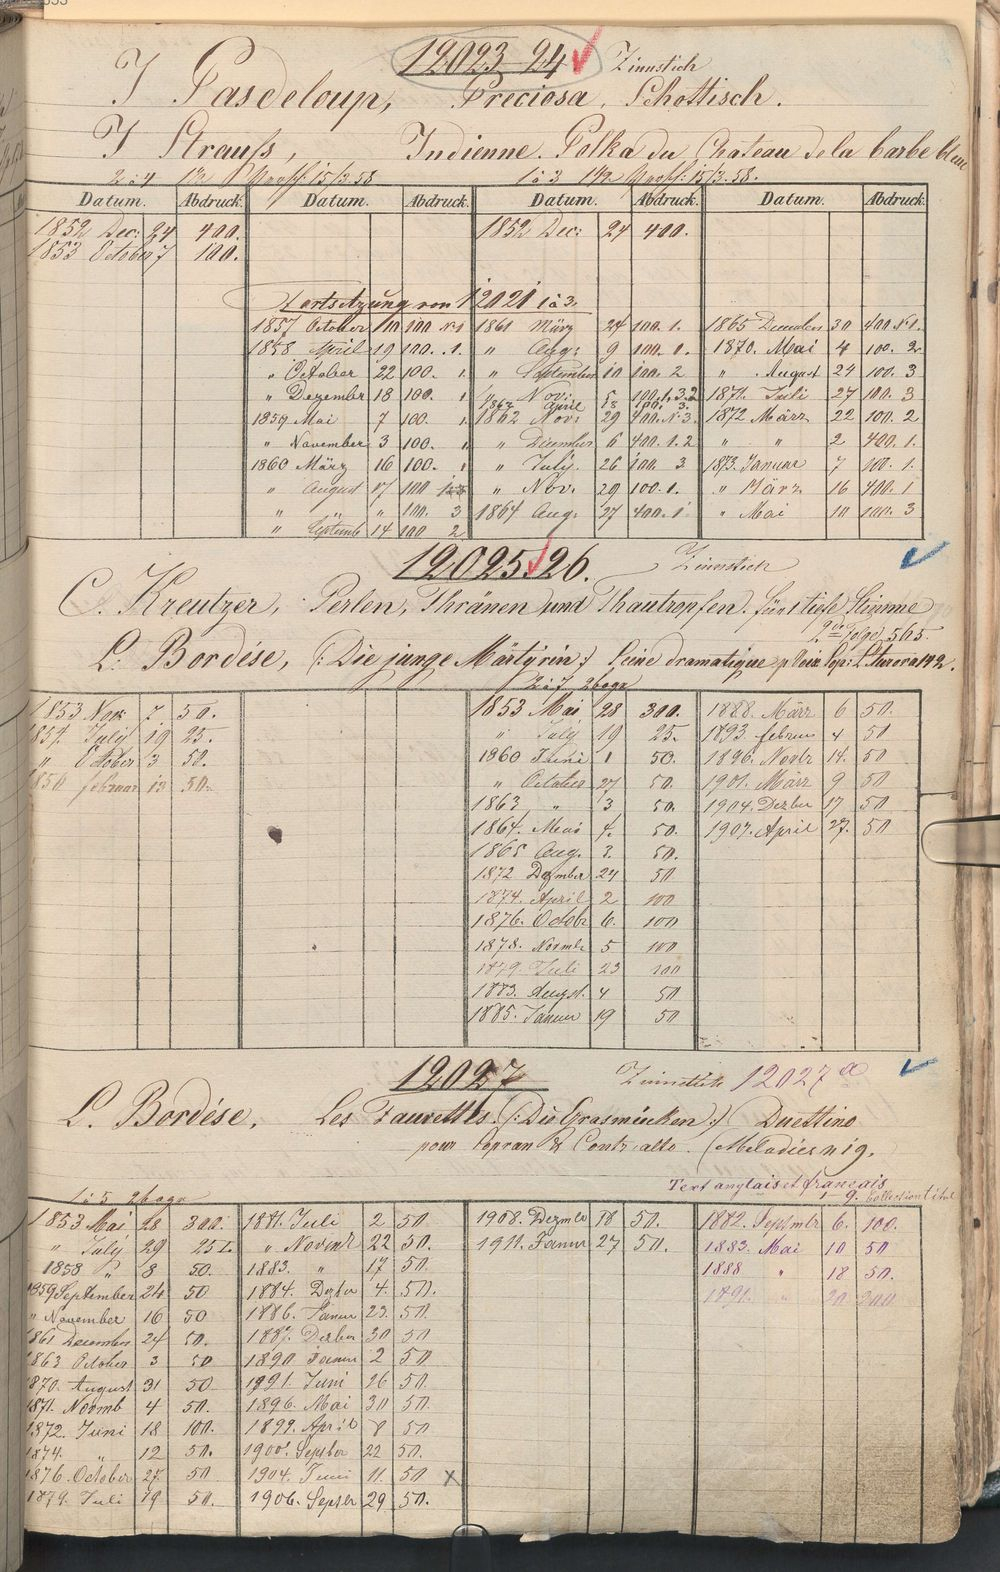 12023-24 Zinnstich
J Pasdeloup, Preciosa, Schottisch.
J Strauss, Indienne. Polka du Chateau de la barbe bleue
2 à 4 15/3.58 1 à 3 15/3.58.
Datum. Abdruck. Datum. Abdruck. Datum. Abdruck. Datum. Abdruck.
1852 Dec: 24 400. 1852 Dec: 24 400.
1853 October 7 100.
Fortsetzung von 12021 1 à 3
1857 October 100 No 1 1861 März 24 100. 1. 1865 Decembr 30 400 No 1.
1858 April 19 100. 1. " Aug: 9 100. 1. 1870. Mai 4 100. 2
" October 22 100. 1. " September 10 100. 2 " August 24 100. 3
" Dezember 18 100. 1 " Nov: 5 100. 1.3.2 1871. Juli 27 100. 3
April 13 100. 3.
1859 Mai 7 100. 1. 1862 Nov: 29 400. No 3. 1872 März 22 100. 2
" November 3 100. " " December 6 400. 1.2 " " 2 400. 1.
1860 März 16 100. " " July. 26 100. 3 1873. Januar 7 100. 1.
" August 17 100 " Nov. 29 100. 1. " März 16 400. 1
" " " 100. 3 1864 Aug: 27 400. 1. " Mai 10 100. 3
" Septemb 14 100 2
12025.26. Zinnstich
C. Kreutzer, Perlen, Thränen und Thautropfen. für tiefe Stimme
2te Folge 565.
L. Bordése, (: Die junge Märtyrin :) Scène dramatique p Voix Sop: L'Aurora 142.
2 à 7 2 bogn
1853 Nov 7. 50. 1853 Mai 28 300. 1888. März 6 50.
1854 July 19 25. " July 19 25. 1893. februr 4 50
" October 3 50. 1860 Juni 1 50. 1896. Novbr 14. 50
1856 februar 13 50. " October 27 50. 1901. März 9 50
1863 " 3 50. 1904. Dezbr 17 50
1864. Mai 4. 50. 1907. April 27. 50
1865 Aug. 3. 50.
1872 Dezmber 24 50
1874. April 2 100
1876. Octobr 6. 100
1878. Novmbr 5 100
1879. Juli 23 100
1883. Augst. 4 50
1885. Januar 19 50
12027 Zinnstich 12027 a
L. Bordése, Les Fauvettes. (: Die Grasmücken :) Duettino
pour Sopran & Contr'alto. (Melodies No 19.
Text anglais et français
1-9. Collectiontitel
1 à 5 2 bogn
1853 Mai 28 300. 1881. Juli 2 50 1908. Dezmbr 18 50. 1882. Septmbr 6. 100.
" July 29 25 " Novmbr 22 50. 1911. Januar 27 50. 1883. Mai 10 50
1858 " 8 50. 1883. " 17 50. 1888 " 18 50.
1859 September 24 50 1884. Dezbr 4. 50. 1891. " 20 200
" November 16 50 1886. Januar 23. 50.
1861 Decembr 24 50. 1887. Dezbr 30 50
1863 October 3 50 1890 Januar 2 50
1870. August 31 50 1891. Juni 26 50.
1871. Novmb 4 50. 1896. Mai 30 50.
1872. Juni 18 100. 1899. April 8 50
1874. " 12 50. 1900. Septbr 22 50.
1876. October 27. 50 1904. Juni 11. 50 x
1879. Juli 19 50. 1906. Septer 29 50.